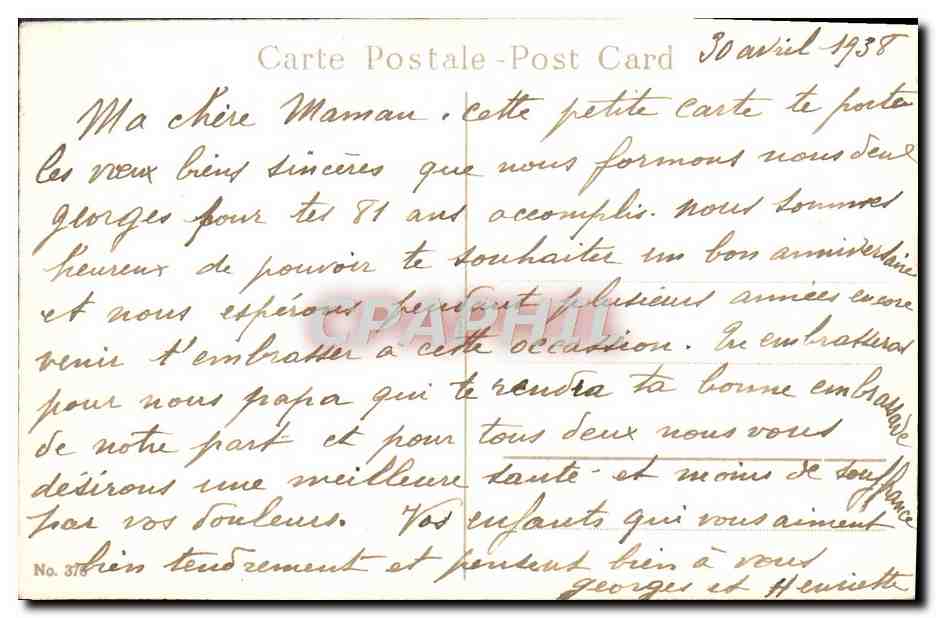 Carte Postale - Post Card
30 avril 1938
Ma chère Maman. cette petite carte te porte
les vœux biens sincères que nous formons nous deux
georges pour tes 81 ans accomplis. nous sommes
heureux de pouvoir te souhaiter un bon anniversaire
et nous espérons pendant plusieurs années encore
venir t'embrasser a cette occassion. Tu embrasseras
pour nous papa qui te rendra ta bonne embrassade
de notre part et pour tous deux nous vous
désirons une meilleure santé et moins de souffrance
par vos douleurs. Vos enfants qui vous aiment
bien tendrement et pensent bien à vous
georges et Henriette
No. 378
CPAPHIL